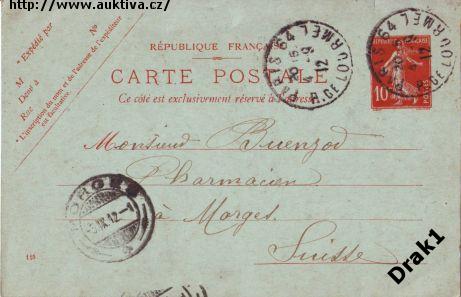 http://www.auktiva.cz/
Nº
Expédié par
M
Demeurant à
Rue
L'inscription du nom et de l'adresse de l'expéditeur
est facultative.
RÉPUBLIQUE FRANÇAISE
CARTE POSTALE
Ce côté est exclusivement réservé à l'adresse
PARIS 49
R. DE LOURMEL
12
PARIS 49
R. DE LOURMEL
10
POSTES
Monsieur Buenzod
Pharmacien
à Morges
Suisse
MORGES
IX.12-1
Drak1